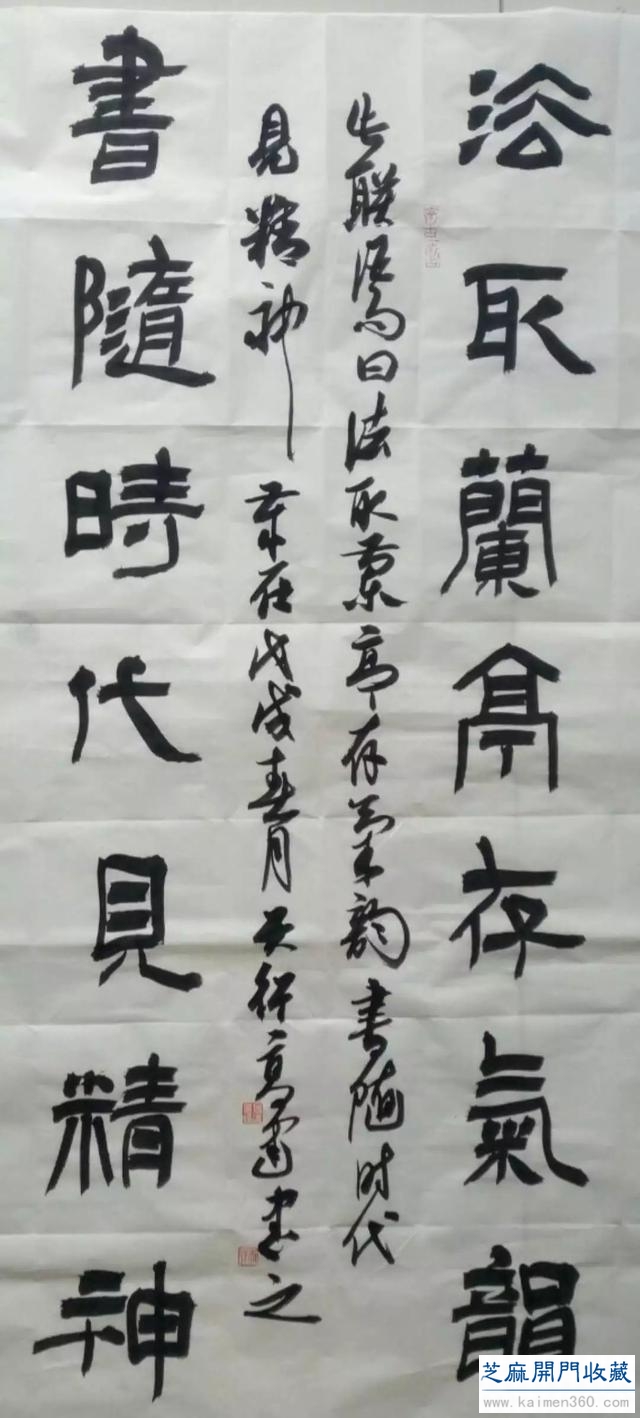 法取蘭亭存氣韻
联语句曰法取蘭亭存氣韵書随时代
見精神歲在戊戌春月書之
書隨時代見精神
芝麻開門收藏
www.kaimen360.com